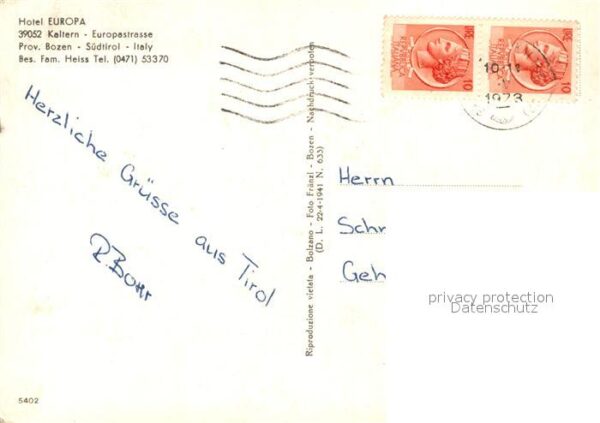 Hotel EUROPA
39052 Kaltern - Europastrasse
Prov. Bozen - Südtirol - Italy
Bes. Fam. Heiss Tel. (0471) 53370
Herzliche Grüsse aus Tirol
R. Bohr
Riproduzione vietata - Bolzano - Foto Fränzl - Bozen - Nachdruck verboten
(D. L. 22-4-1941 N. 633)
LIRE 10
REPUBBLICA
LIRE 10
1973
Herrn
Schr
Geh
privacy protection
Datenschutz
5402